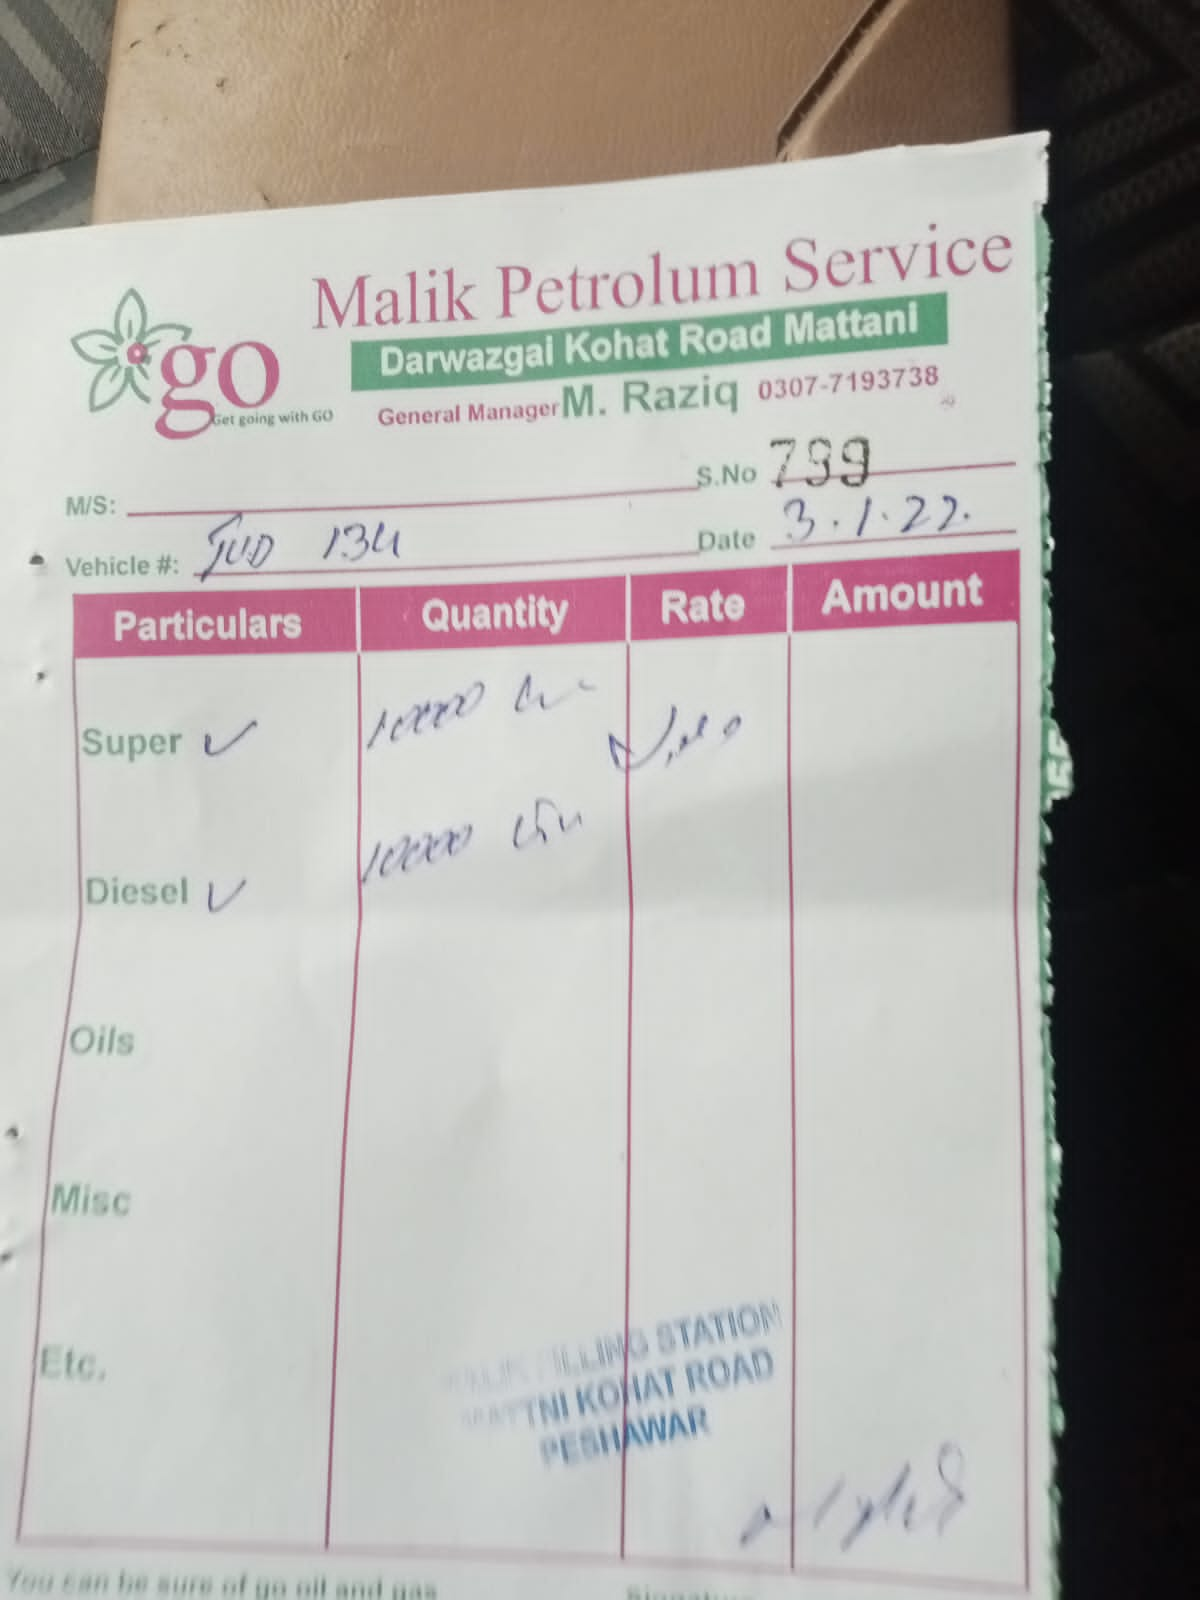 Malik Petrolum Service
go
Get going with GO
Darwazgai Kohat Road Mattani
General Manager M. Raziq 0307-7193738
S.No 799
M/S:
Date 3.1.22.
Vehicle #: 134
Particulars Quantity Rate Amount
Super ✓ 10000 لیٹر
وصول
Diesel ✓ 10000 لیٹر
Oils
Misc
Etc.
FILLING STATION
MATTNI KOHAT ROAD
PESHAWAR
You can be sure of go oil and gas
Signature